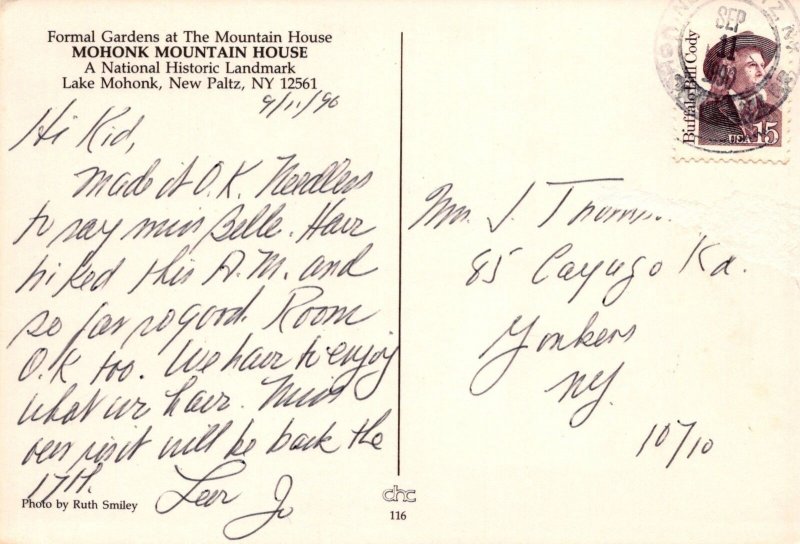 Formal Gardens at The Mountain House
MOHONK MOUNTAIN HOUSE
A National Historic Landmark
Lake Mohonk, New Paltz, NY 12561
9/11/90
Hi Kid,
Made it O.K. Needless
to say miss Belle. Have
hiked this A.M. and
so far so good. Room
O.K. too. We have to enjoy
what we have. Miss
our visit will be back the
17th.
Love Jo
Photo by Ruth Smiley
chc
116
SEP
11
Buffalo Bill Cody
USA 15
J. Thom
85 Cayuga Rd.
Yonkers
NY.
10710